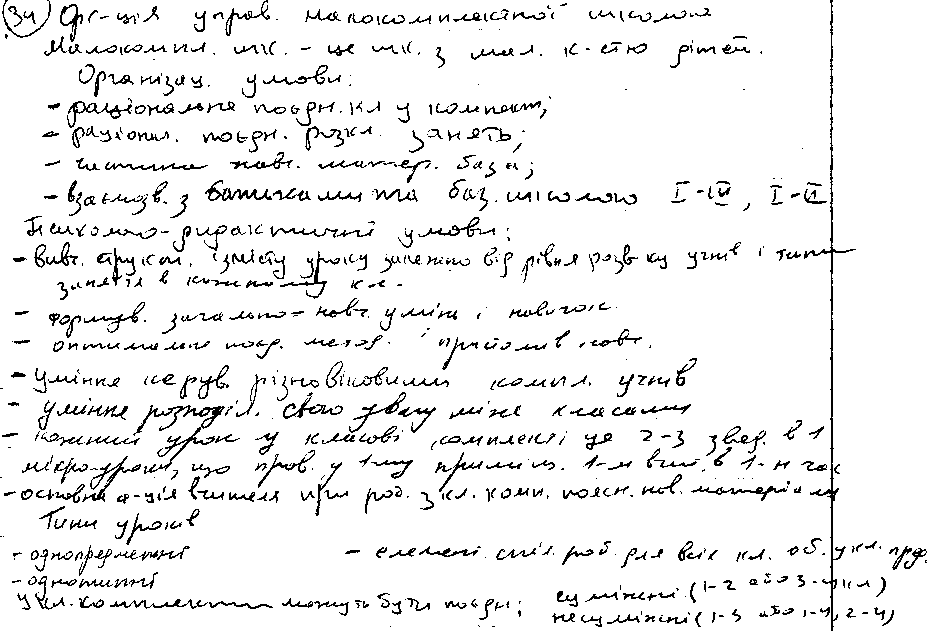 34 Орг-ція управ. малокомплектної школою
Малокомпл. шк. - це шк. з мал. к-стю дітей.
Організац. умови:
- раціональне поєдн. кл у комплекті;
- раціонал. поєдн. розкл. занять;
- частина навч. матер. база;
- взаємозв. з батьками та баз. школою I-III, I-II
Психолого-дидактичні умови:
- вивч. структ. і змісту уроку залежно від рівня розв-ку учнів і типу
заняття в кожному кл.
- формув. загально-навч. умінь і навичок
- оптимальне поєд. метод. і прийомів навч.
- уміння керув. різновіковими компл. учнів
- уміння розподіл. свою увагу між класами
- кожний урок у класові комплекті це 2-3 звед. в 1
мікроуроки, що пров. у 1-му приміщ. 1-м вчит. в 1-н час
- основна ф-ція вчителя при роб. з кл. комп. поясн. нов. матеріалу
Типи уроків
- однопредметні - елемент. спіл. роб. для всіх кл. об. у кл.
- однотипні
У кл. комплектах можуть бути поєдн; суміжні (1-2 або 3-4 кл)
несуміжні (1-3 або 1-4, 2-4)